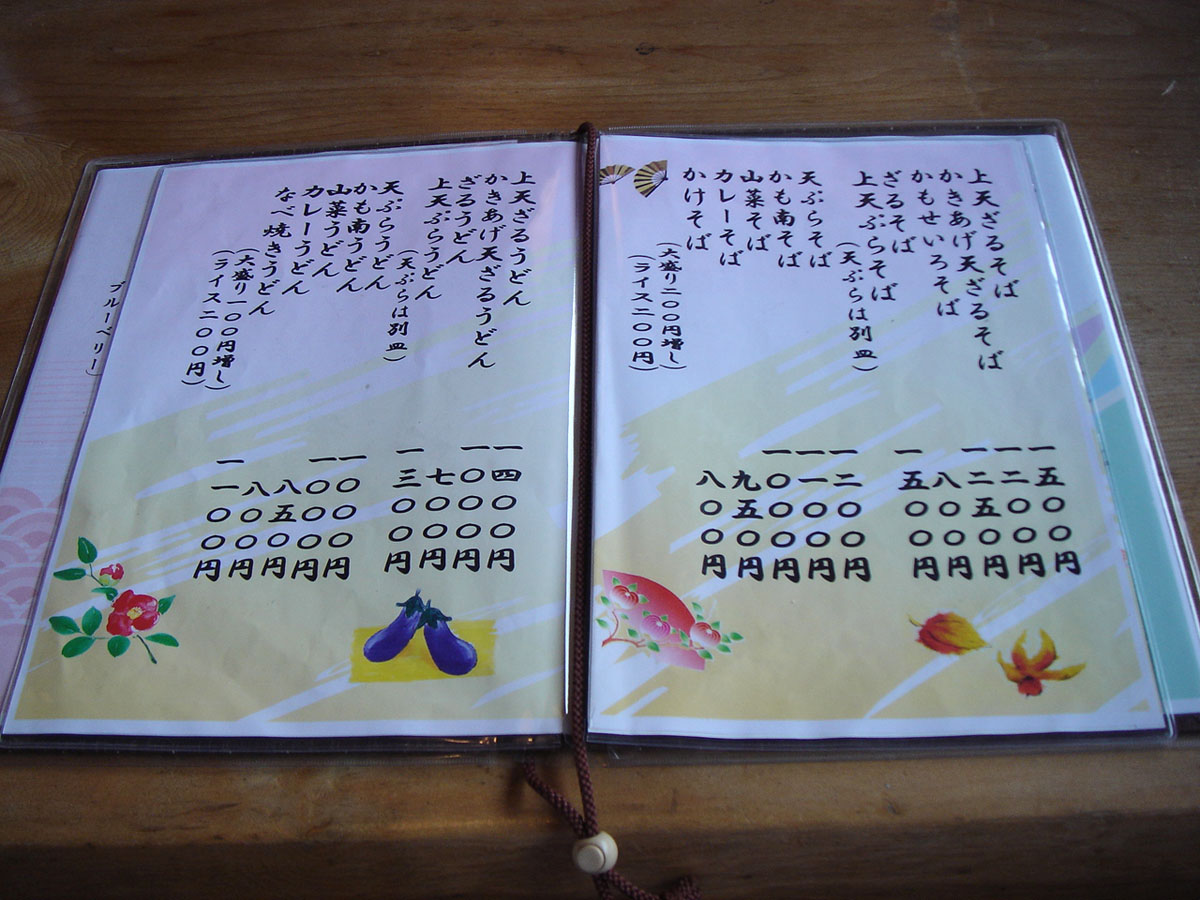 上天ざるそば
かきあげ天ざるそば
かもせいろそば
ざるそば
上天ぷらそば
(天ぷらは別皿)
天ぷらそば
かも南そば
山菜そば
カレーそば
かけそば
(大盛り二〇〇円増し)
(ライス二〇〇円)
一五〇〇円
一二〇〇円
一二五〇円
八〇〇円
一五〇〇円
一二〇〇円
一一〇〇円
一〇〇〇円
九五〇円
八〇〇円
上天ざるうどん
かきあげ天ざるうどん
ざるうどん
上天ぷらうどん
(天ぷらは別皿)
天ぷらうどん
かも南うどん
山菜うどん
カレーうどん
なべ焼きうどん
(大盛り一〇〇円増し)
(ライス二〇〇円)
一四〇〇円
一〇〇〇円
七〇〇円
一三〇〇円
一〇〇〇円
一〇〇〇円
八五〇円
八〇〇円
一一〇〇円
ブルーベリー)